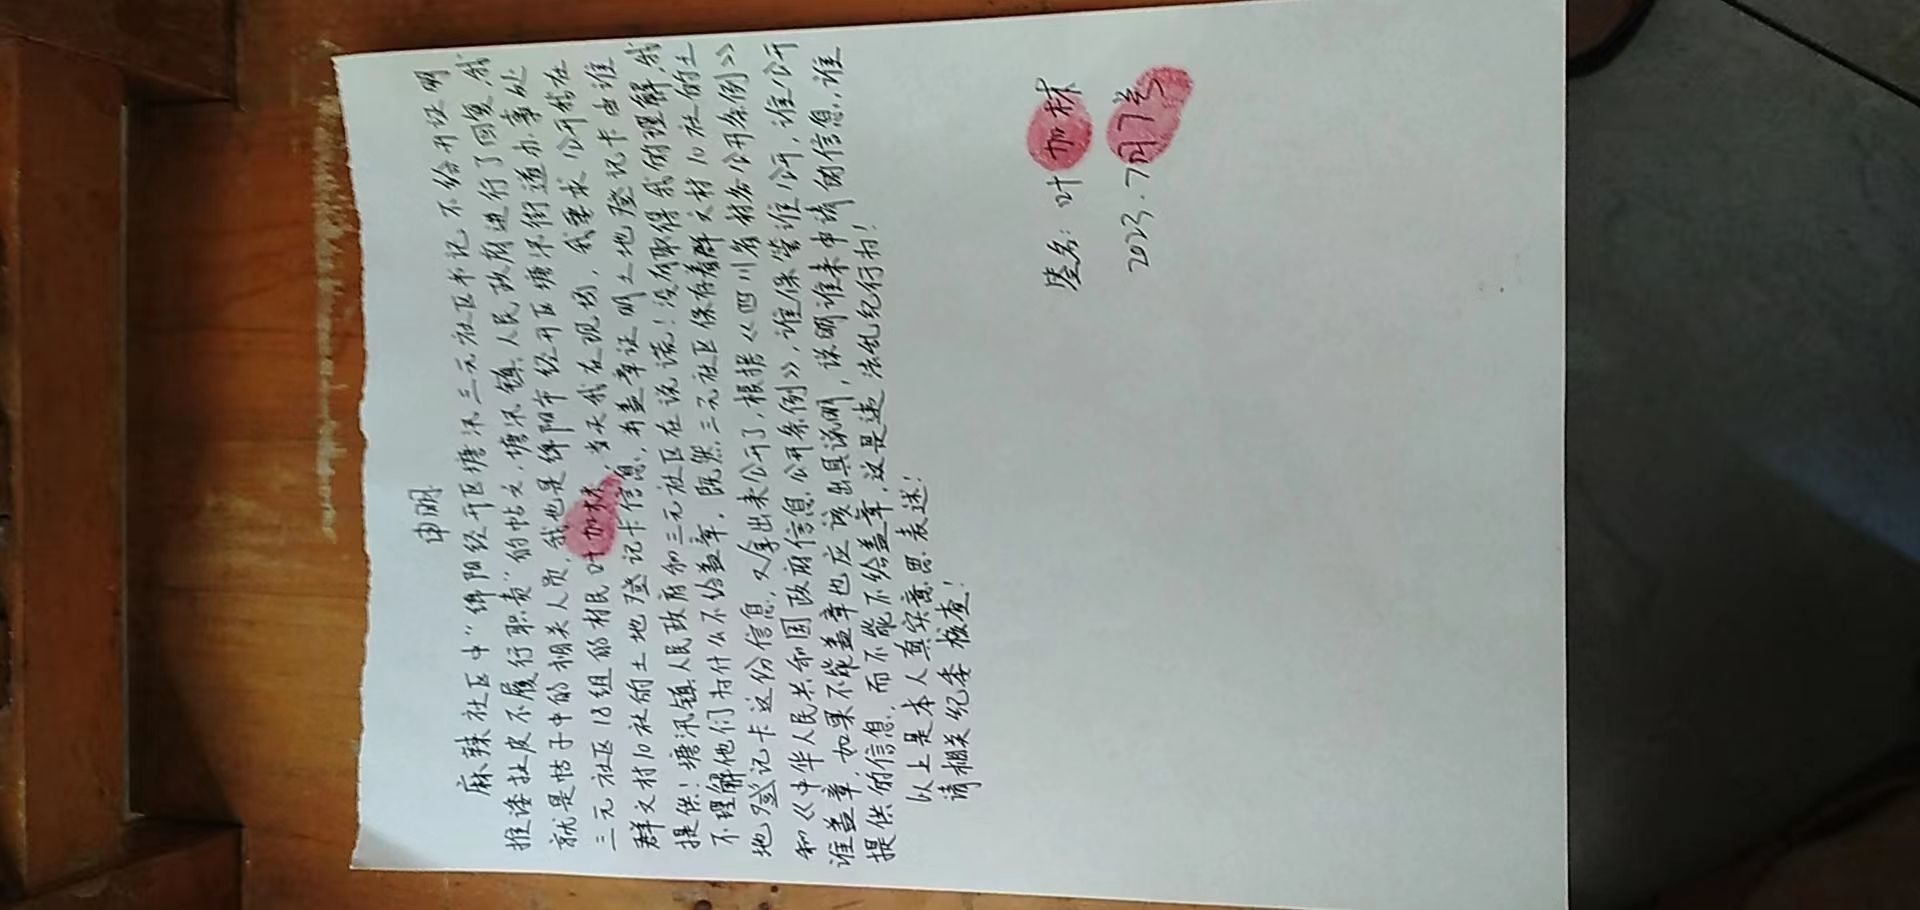 申明
麻辣社区中“绵阳经开区塘汛三元社区书记，不给开证明
推诿扯皮不履行职责”的帖文，塘汛镇人民政府进行了回复，我
就是帖子中的相关人员，我也是绵阳市经开区塘汛街道办事处
三元社区18组的村民叶加林，当天我在现场，我要求公开我在
群文村10社的土地登记卡信息，并盖章证明土地登记卡由谁
提供！塘汛镇人民政府和三元社区在说谎！没有取得我的理解，我
不理解他们为什么不给盖章，既然三元社区保存着群文村10社的土
地登记卡这份信息，又拿出来公开了，根据《四川省村务公开条例》
和《中华人民共和国政府信息公开条例》，谁保管谁公开，谁公开
谁盖章，如果不能盖章也应该出具说明，说明谁来申请的信息，谁
提供的信息，而不能不给盖章，这是违法乱纪行为！
以上是本人真实意思表述！
请相关纪委核查！
签名：叶加林
2023.7月7号